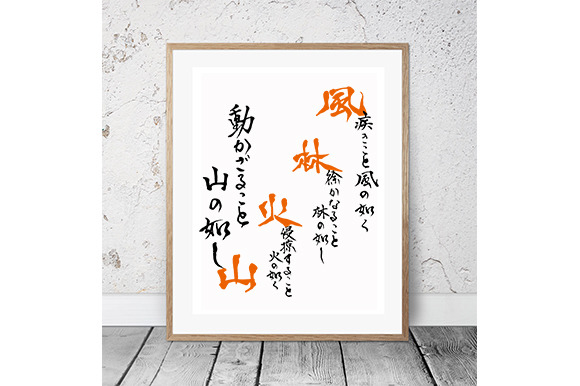 風
疾きこと風の如く
林
徐かなること
林の如し
火
侵掠すること
火の如く
動かざること
山の如し
山